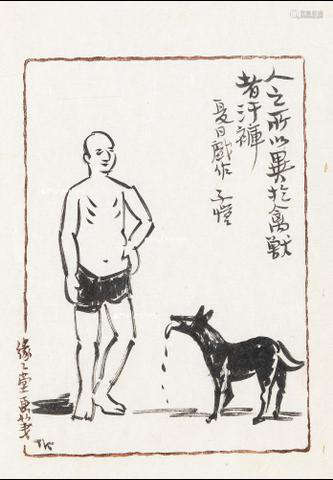 人之所以異於禽獸
者汗褲
夏日戲作 子愷
緣緣堂畫箋
TK